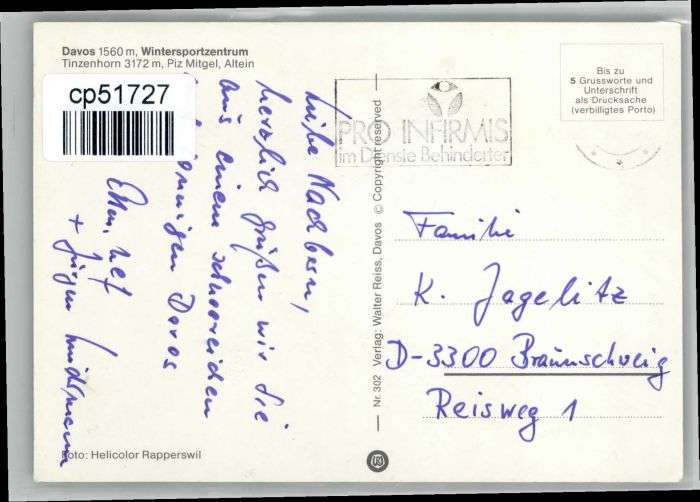 Davos 1560 m, Wintersportzentrum
Tinzenhorn 3172 m, Piz Mitgel, Altein
cp51727
Liebe Nachbarn,
herzlich grüßen wir Sie
aus einem schneereichen
sonnigen Davos
+ Jürgen
Foto: Helicolor Rapperswil
Nr. 302 Verlag: Walter Reiss, Davos © Copyright reserved
PRO INFIRMIS
im Dienste Behinderter
Bis zu
5 Grussworte und
Unterschrift
als Drucksache
(verbilligtes Porto)
Familie
K. Jagelitz
D-3300 Braunschweig
Reisweg 1